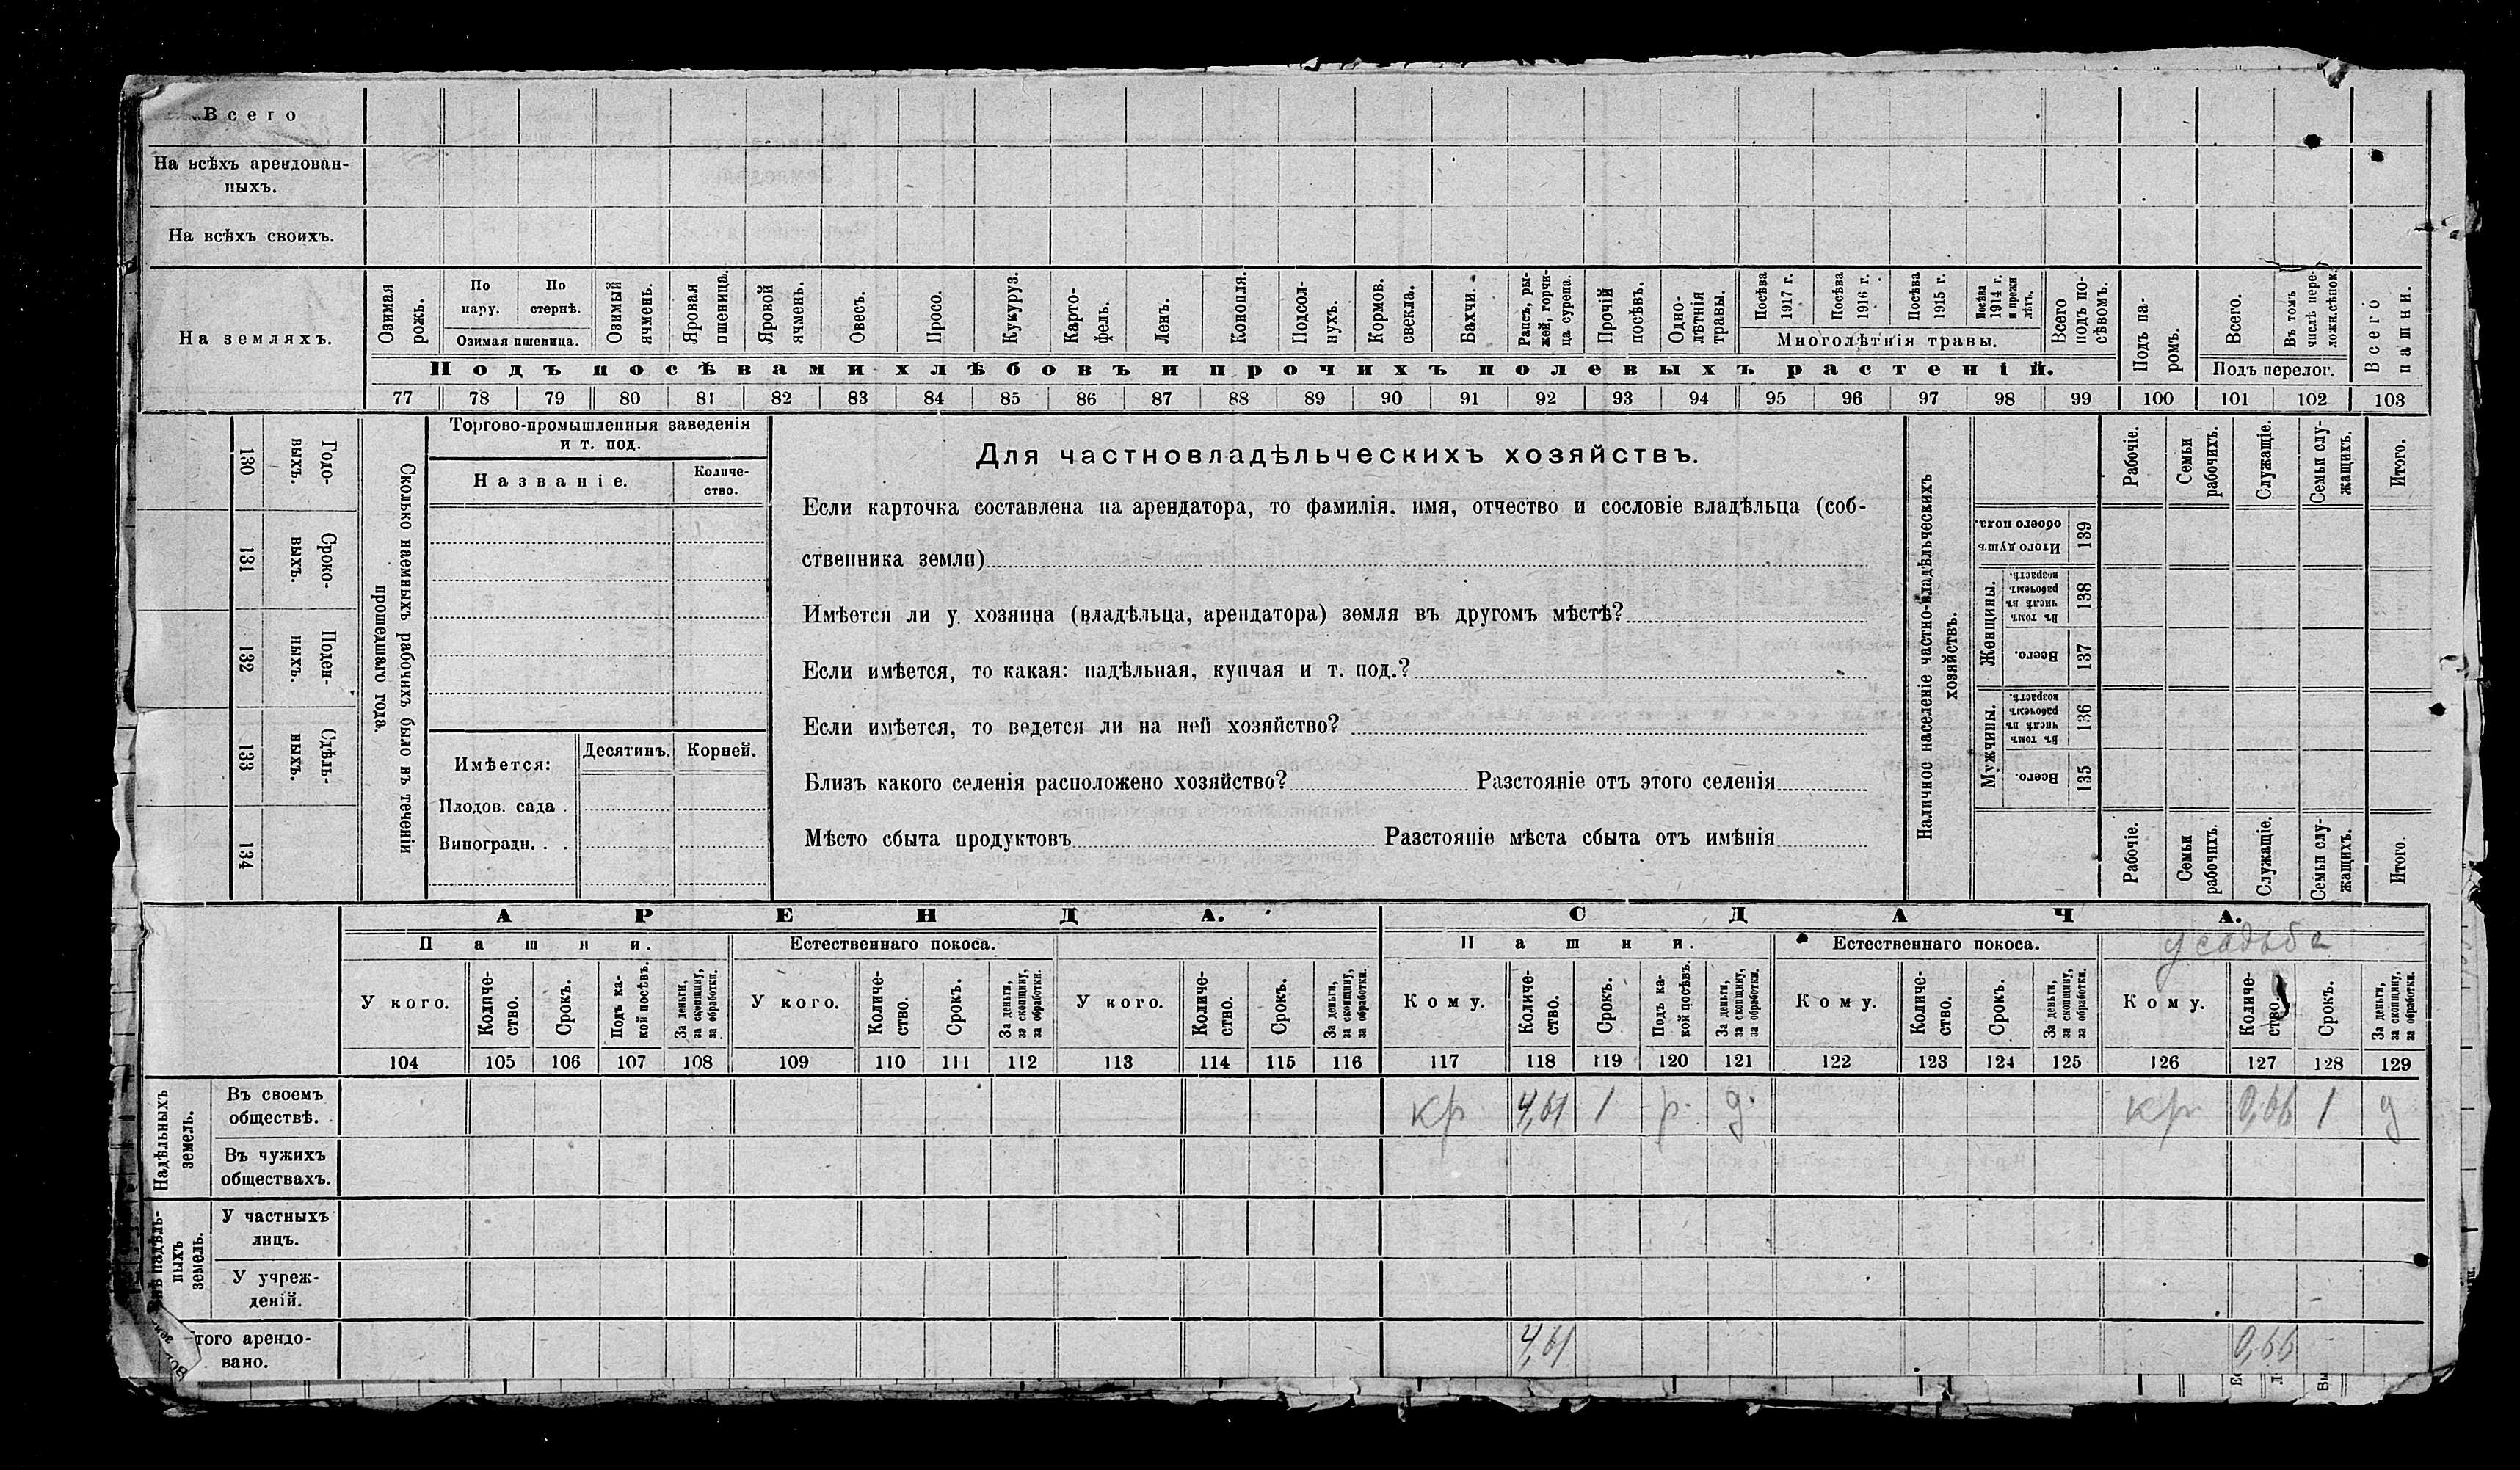 Всего
На всѣхъ арендован-
ныхъ.
На всѣхъ своихъ.
На земляхъ.
Озимая рожь.
По пару.
По стернѣ.
Озимая пшеница.
Озимый ячмень.
Яровая пшеница.
Яровой ячмень.
Овесъ.
Просо.
Кукуруз.
Карто-
фель.
Ленъ.
Конопля.
Подсол-
нухъ.
Кормов. свекла.
Бахчи.
Рапсъ, ры-
жей, горчи-
ца сурепа.
Прочій посѣвъ.
Одно-
лѣтнія травы.
Посѣва 1917 г.
Посѣва 1916 г.
Посѣва 1915 г.
Посѣва 1914 г. и прежн лѣтъ.
Многолѣтнія травы.
Всего подъ по-
сѣвомъ.
Подъ па-
ромъ.
Всего.
Въ томъ числѣ пере-
ложн.сѣнок.
Подъ перелог.
Всего пашни.
Подъ посѣвами хлѣбовъ и прочихъ полевыхъ растеній.
77 78 79 80 81 82 83 84 85 86 87 88 89 90 91 92 93 94 95 96 97 98 99 100 101 102 103
130 Годо-
выхъ.
131 Сроко-
выхъ.
132 Поден-
ныхъ.
133 Сдѣль-
ныхъ.
134
Сколько наемныхъ рабочихъ было въ теченіи
прошедшаго года.
Торгово-промышленныя заведенія
и т. под.
Названіе.
Количе-
ство.
Имѣется:
Десятинъ.
Корней.
Плодов. сада .
Виноградн. . .
Для частновладѣльческихъ хозяйствъ.
Если карточка составлена на арендатора, то фамилія, имя, отчество и сословіе владѣльца (соб-
ственника земли)
Имѣется ли у хозяина (владѣльца, арендатора) земля въ другомъ мѣстѣ?
Если имѣется, то какая: надѣльная, купчая и т. под.?
Если имѣется, то ведется ли на ней хозяйство?
Близъ какого селенія расположено хозяйство? Разстояніе отъ этого селенія
Мѣсто сбыта продуктовъ Разстояніе мѣста сбыта отъ имѣнія
Наличное населеніе частно-владѣльческихъ
хозяйствъ.
Рабочіе.
Семьи рабочихъ.
Служащіе.
Семьи слу-
жащихъ.
Итого.
Итого душъ обоего пола. 139
Женщины.
Въ томъ числѣ въ рабочемъ возрастѣ. 138
Всего. 137
Мужчины.
Въ томъ числѣ въ рабочемъ возрастѣ. 136
Всего. 135
Рабочіе.
Семьи рабочихъ.
Служащіе.
Семьи слу-
жащихъ.
Итого.
АРЕНДА. СДАЧА.
Пашни. Естественнаго покоса. Пашни. Естественнаго покоса. усадьба
У кого.
Количе-
ство.
Срокъ.
Подъ ка-
кой посѣвъ.
За деньги, за скопщину, за обработки.
У кого.
Количе-
ство.
Срокъ.
За деньги, за скопщину, за обработки.
У кого.
Количе-
ство.
Срокъ.
За деньги, за скопщину, за обработки.
Кому.
Количе-
ство.
Срокъ.
Подъ ка-
кой посѣвъ.
За деньги, за скопщину, за обработки.
Кому.
Количе-
ство.
Срокъ.
За деньги, за скопщину, за обработки.
Кому.
Количе-
ство.
Срокъ.
За деньги, за скопщину, за обработки.
104 105 106 107 108 109 110 111 112 113 114 115 116 117 118 119 120 121 122 123 124 125 126 127 128 129
Надѣльныхъ земель.
Въ своемъ
обществѣ. кр 4,61 1 р. д. кр 0,66 1 д
Въ чужихъ
обществахъ.
Внѣ надѣль-
ныхъ земель.
У частныхъ
лицъ.
У учреж-
деній.
того арендо-
вано. 4,61 0,66